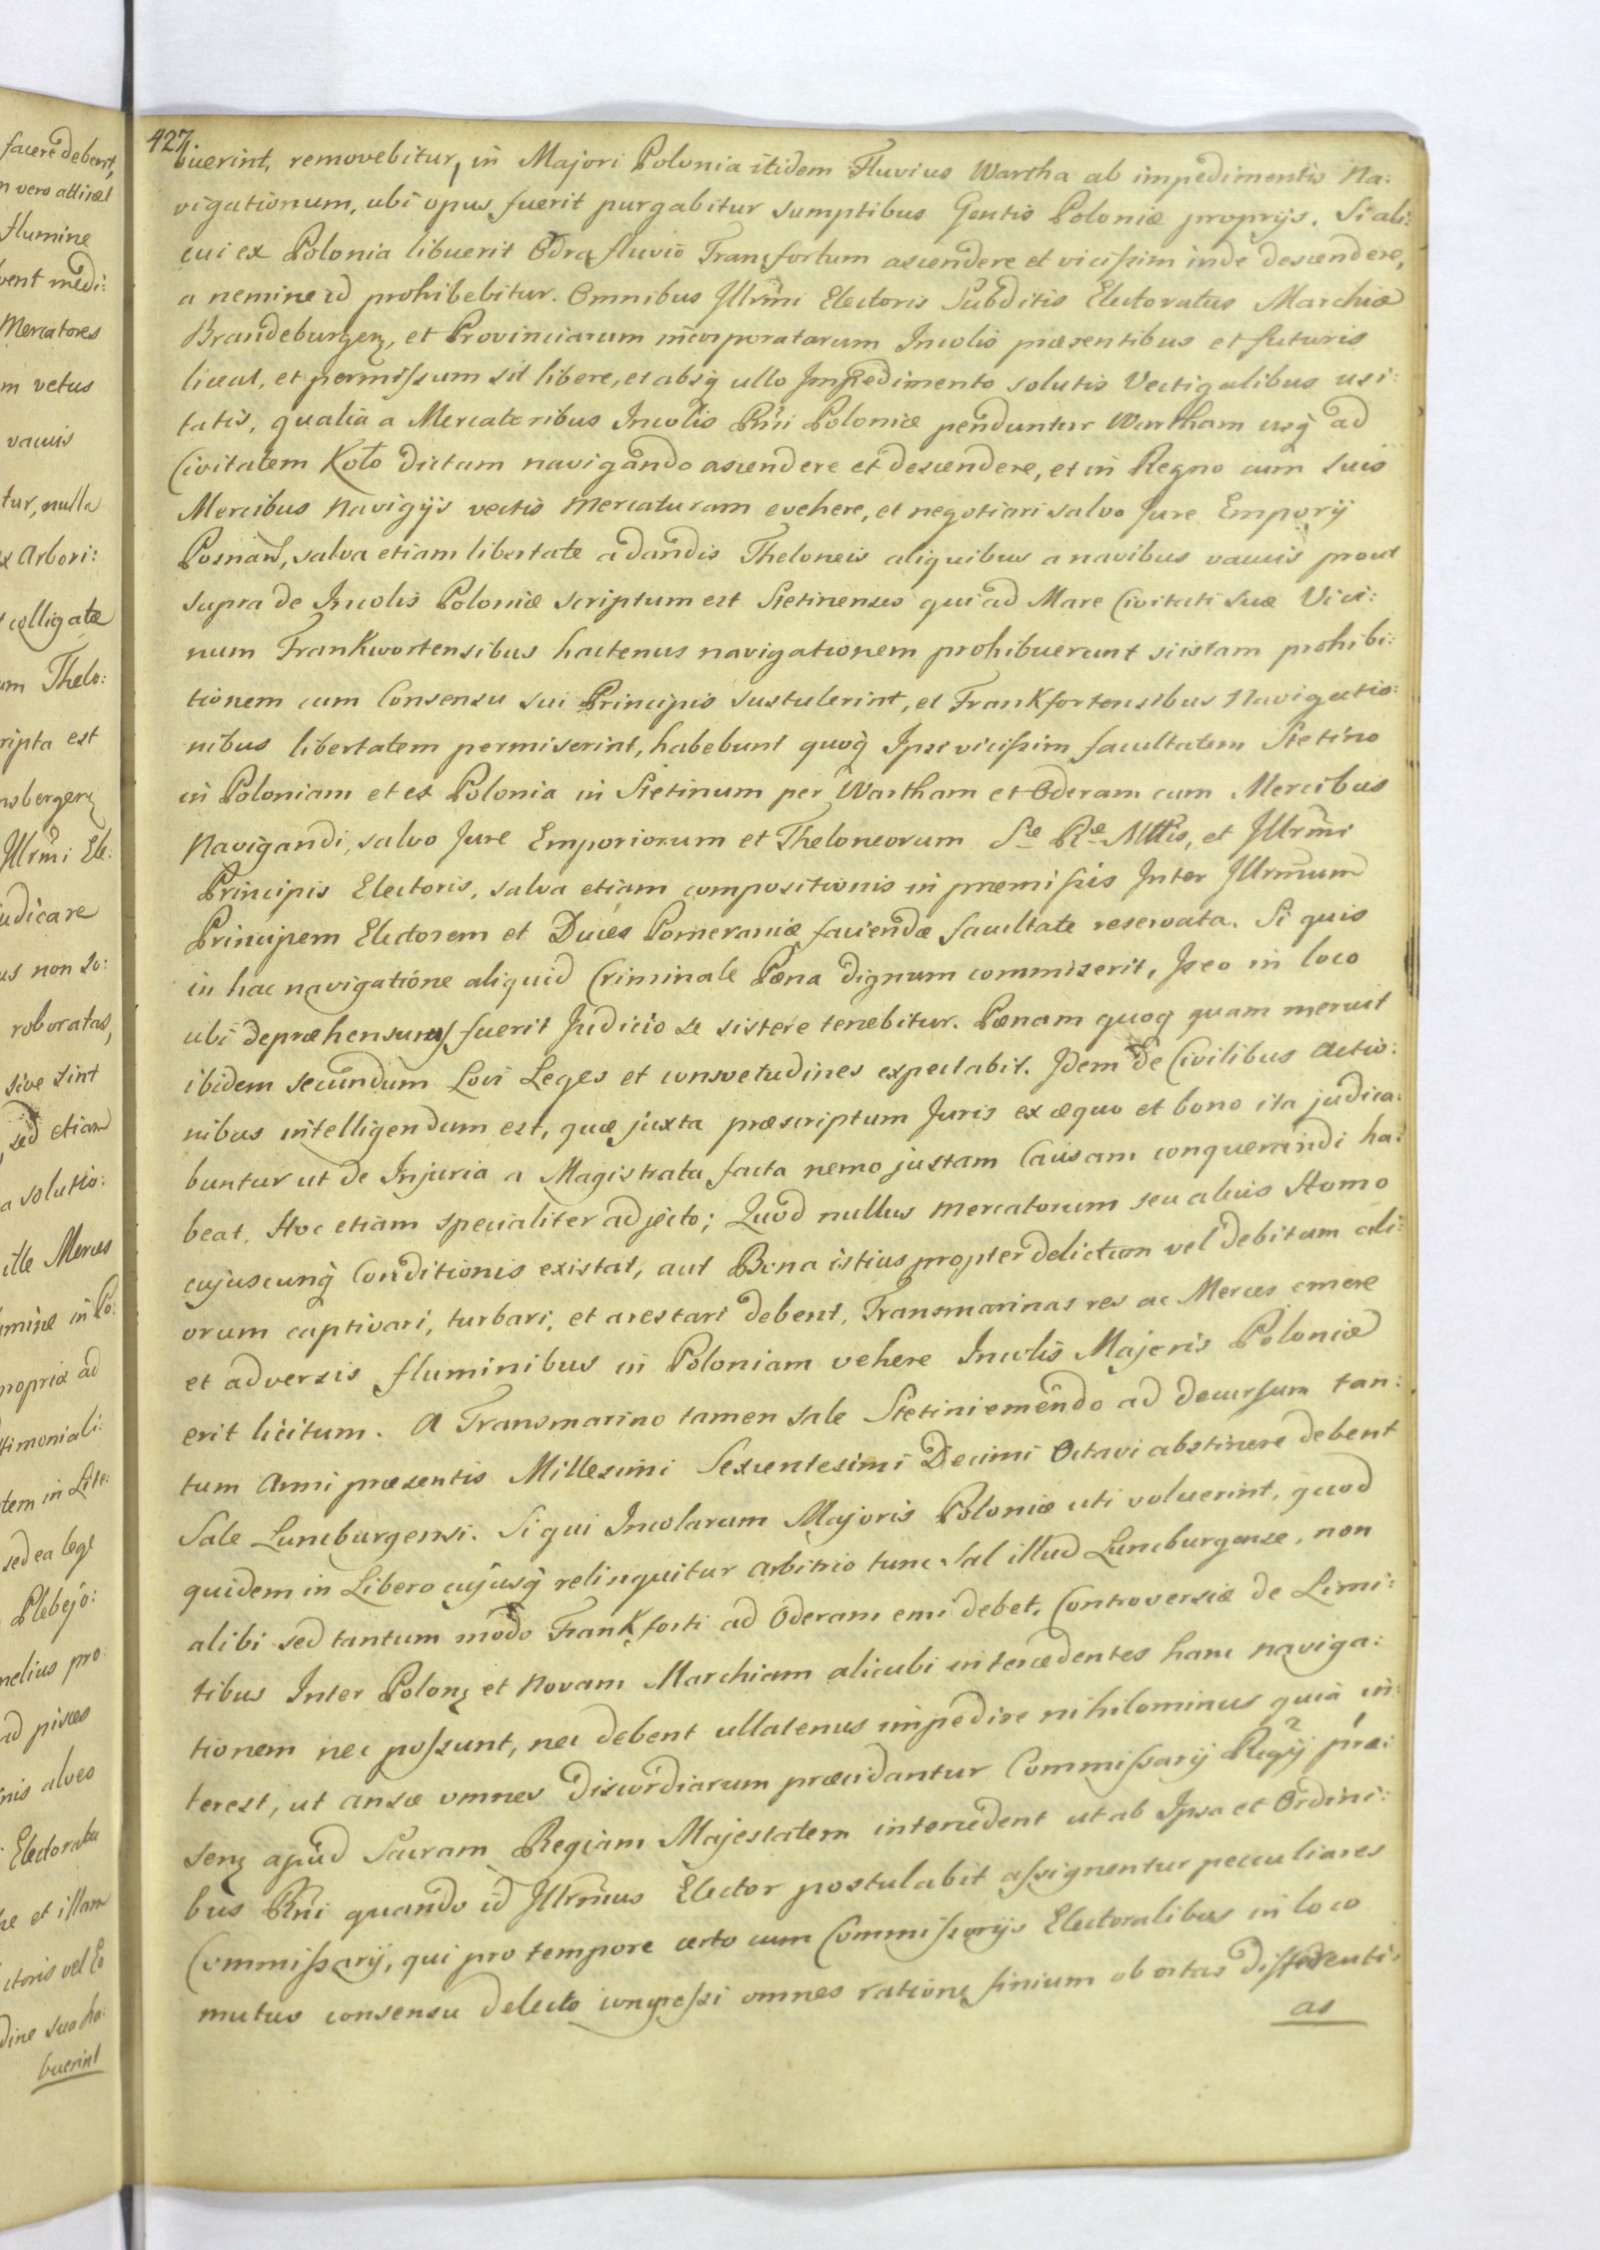 facere debent,
n vero attinet
flumine
vent medi:
Mercatores
m vetus
vacuis
tur, nulla
ex Arbori:
colligatæ
um Thelo:
ripta est
nsbergenʒ
Illrm̃i Ele:
judicare
us non so:
roboratas,
sive sint
, sed etiam
a solutio:
ille Merces
umine in Po:
propriæ ad
stimoniali:
tem in Lite:
sed ea lege
Plebejo:
melius pro:
ad pisces
nis alveo
Electoratu
he et illam
ctoris vel Eo
dine suo ha:
buerint
427
buerint, removebitur, in Majori Polonia itidem Fluvius Wartha ab impedimentis Na:
vigationum, ubi opus fuerit purgabitur sumptibus Gentis Poloniæ proprijs. Si ali:
cui ex Polonia libuerit Odræ fluvio Francfortum ascendere et vicissim inde descendere,
a nemine id prohibebitur. Omnibus Illrm̃i Electoris Subditis Electoratus Marchiæ
Brandeburgenʒ, et Provinciarum incorporatarum Incolis præsentibus et futuris
liceat, et permissum sit libere, et absq̃ ullo Impedimento solutis Vectigalibus usi:
tatis, qualia a Mercatoribus Incolis Rñi Poloniæ penduntur Wartham usq̃ ad
Civitatem Koło dictam navigando ascendere et descendere, et in Regno cum suis
Mercibus Navigijs vectis Mercaturam evehere, et negotiari salvo Jure Emporij
Posnãn, salva etiam libertate a dandis Theloneis aliquibus a navibus vacuis prout
supra de Incolis Poloniæ scriptum est Stetinenses qui ad Mare Civitati suæ Vici:
num Frankwortensibus hactenus navigationem prohibuerunt si istam prohibi:
tionem cum Consensu sui Principis sustulerint, et Frankfortensibus Navigatio:
nibus libertatem permiserint, habebunt quoq̃ Ipsi vicissim facultatem Stetino
in Poloniam et ex Polonia in Stetinum per Wartham et Oderam cum Mercibus
Navigandi, salvo Jure Emporiorum et Theloneorum Sæ Ræ Mttis, et Illrm̃i
Principis Electoris, salva etiam compositionis in præmissis Inter Illrm̃um
Principem Electorem et Duces Pomeraniæ faciendæ facultate reservata. Si quis
in hac navigatione aliquid Criminale Pœna dignum commiserit, Is eo in loco
ubi depræhensus fuerit Judicio se sistere tenebitur. Pœnam quoq̃ quam meruit
ibidem secundum Loci Leges et consvetudines expectabit. Idem de Civilibus Actio:
nibus intelligendum est, quæ juxta præscriptum Juris ex æquo et bono ita judica:
buntur ut de Injuria a Magistratu facta nemo justam Causam conquerendi ha:
beat. Hoc etiam specialiter adjecto; Quod nullus Mercatorum seu alius Homo
cujuscunq̃ Conditionis existat, aut Bona istius propter delictum vel debitum ali:
orum captivari, turbari, et arestari debent, Transmarinas res ac Merces emere
et adversis fluminibus in Poloniam vehere Incolis Majoris Poloniæ
erit licitum. A Transmarino tamen sale Stetini emendo ad decursum tan:
tum Anni præsentis Millesimi Sexcentesimi Decimi Octavi abstinere debent
Sale Luneburgensi. Si qui Incolarum Majoris Poloniæ uti voluerint, quod
quidem in Libero cujusq̃ relinquitur Arbitrio tunc Sal illud Luneburgense, non
alibi sed tantum modo Frankforti ad Oderam emi debet. Controversiæ de Limi:
tibus Inter Polonʒ et Novam Marchiam alicubi intercedentes hanc naviga:
tionem nec possunt, nec debent ullatenus impedire nihilominus quia in:
terest, ut ansæ omnes discordiarum præcidantur Commissarij Regij præ:
senʒ apud Sacram Regiam Majestatem intercedent ut ab Ipsa et Ordini:
bus Rñi quando id Illrm̃us Elector postulabit assignentur peculiares
Commissarij, qui pro tempore certo cum Commissarijs Electoralibus in loco
mutuo consensu delecto congressi omnes ratione finium obortas dissenti:
as